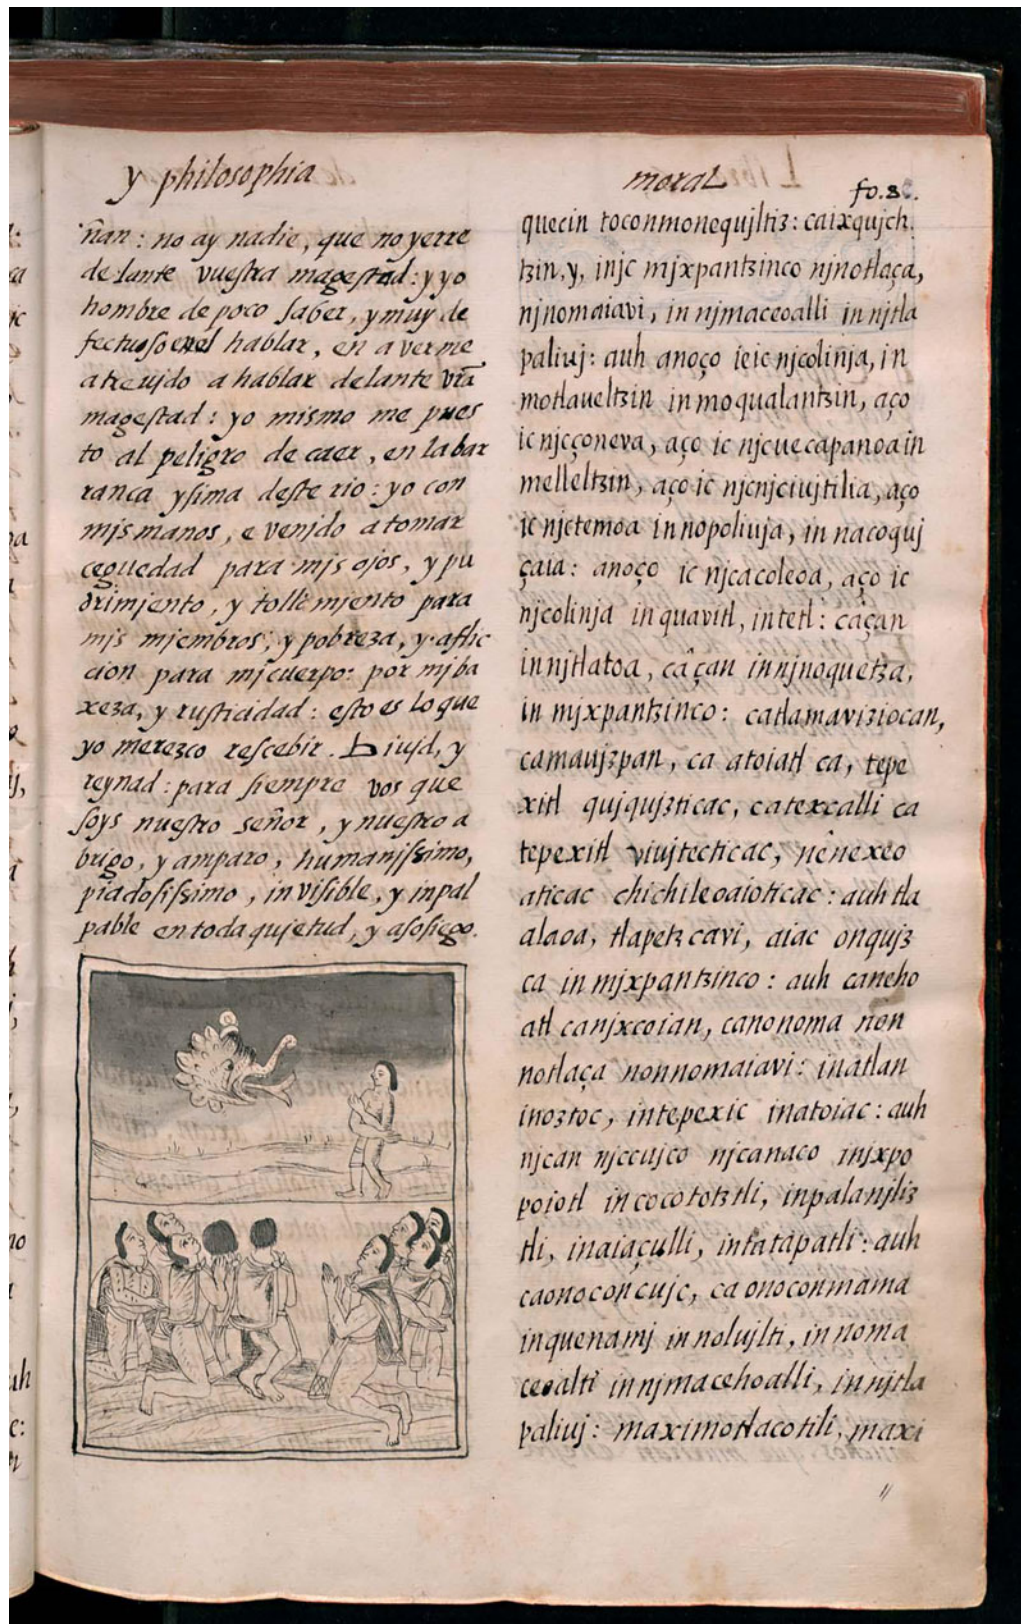 y philosophia
moral
fo. 8.
ñan: no ay nadie, que no yerre
delante vuestra magestad: y yo
hombre de poco saber, y muy de
fectuoso en el hablar, en averme
atreujdo a hablar delante vr̃a
magestad: yo mismo me pues
to al peligro de caer, en la bar
ranca y sima deste rio: yo con
mjs manos, e venjdo a tomar
ceguedad para mjs ojos, y pu
drimjento, y tollimiento para
mjs miembros, y pobreza, y aflic
cion para mj cuerpo: por mj ba
xeza, y rusticidad: esto es lo que
yo merezco rescebir. Biujd, y
reynad: para siempre vos que
soys nuestro señor, y nuestro a
brigo, y amparo, humanjssimo,
piadosissimo, invisible, y inpal
pable en toda qujetud, y asosiego.
quecin toconmonequjltiz: caixqujch.
tzin, y, injc mjxpantzinco njnotlaça,
njnomaiavi, in njmaceoalli in njtla
paliuj: auh anoço ieic njcolinja, in
motlaueltzin in moqualantzin, aço
ic njcçoneva, aço ic njcuecapanoa in
melleltzin, aço ic njcnjciujtilia, aço
ic njctemoa in nopoliuja, in nacoquj
çaia: anoço ic njcacoleoa, aço ic
njcolinja in quavitl, in tetl: câçan
in njtlatoa, câçan in njnoquetza,
in mjxpantzinco: catlamaviziocan,
camaujzpan, ca atoiatl ca, tepe
xitl qujqujzticac, catexcalli ca
tepexitl viujtecticac, nênexeo
aticac chichileoaioticac: auh tla
alaoa, tlapetzcavi, aiac onqujz
ca in mjxpantzinco: auh caneho
atl canjxcoian, canonoma non
notlaça nonnomaiavi: inatlan
inoztoc, intepexic inatoiac: auh
njcan njccujco njcanaco injxpo
poiotl in cocototztli, inpalanjliz
tli, inaiaçulli, intatapatli: auh
caonoconcujc, ca onoconmama
inquenamj in nolujlti, in noma
ceoalti in njmacehoalli, in njtla
paliuj: maximotlacotili, maxi